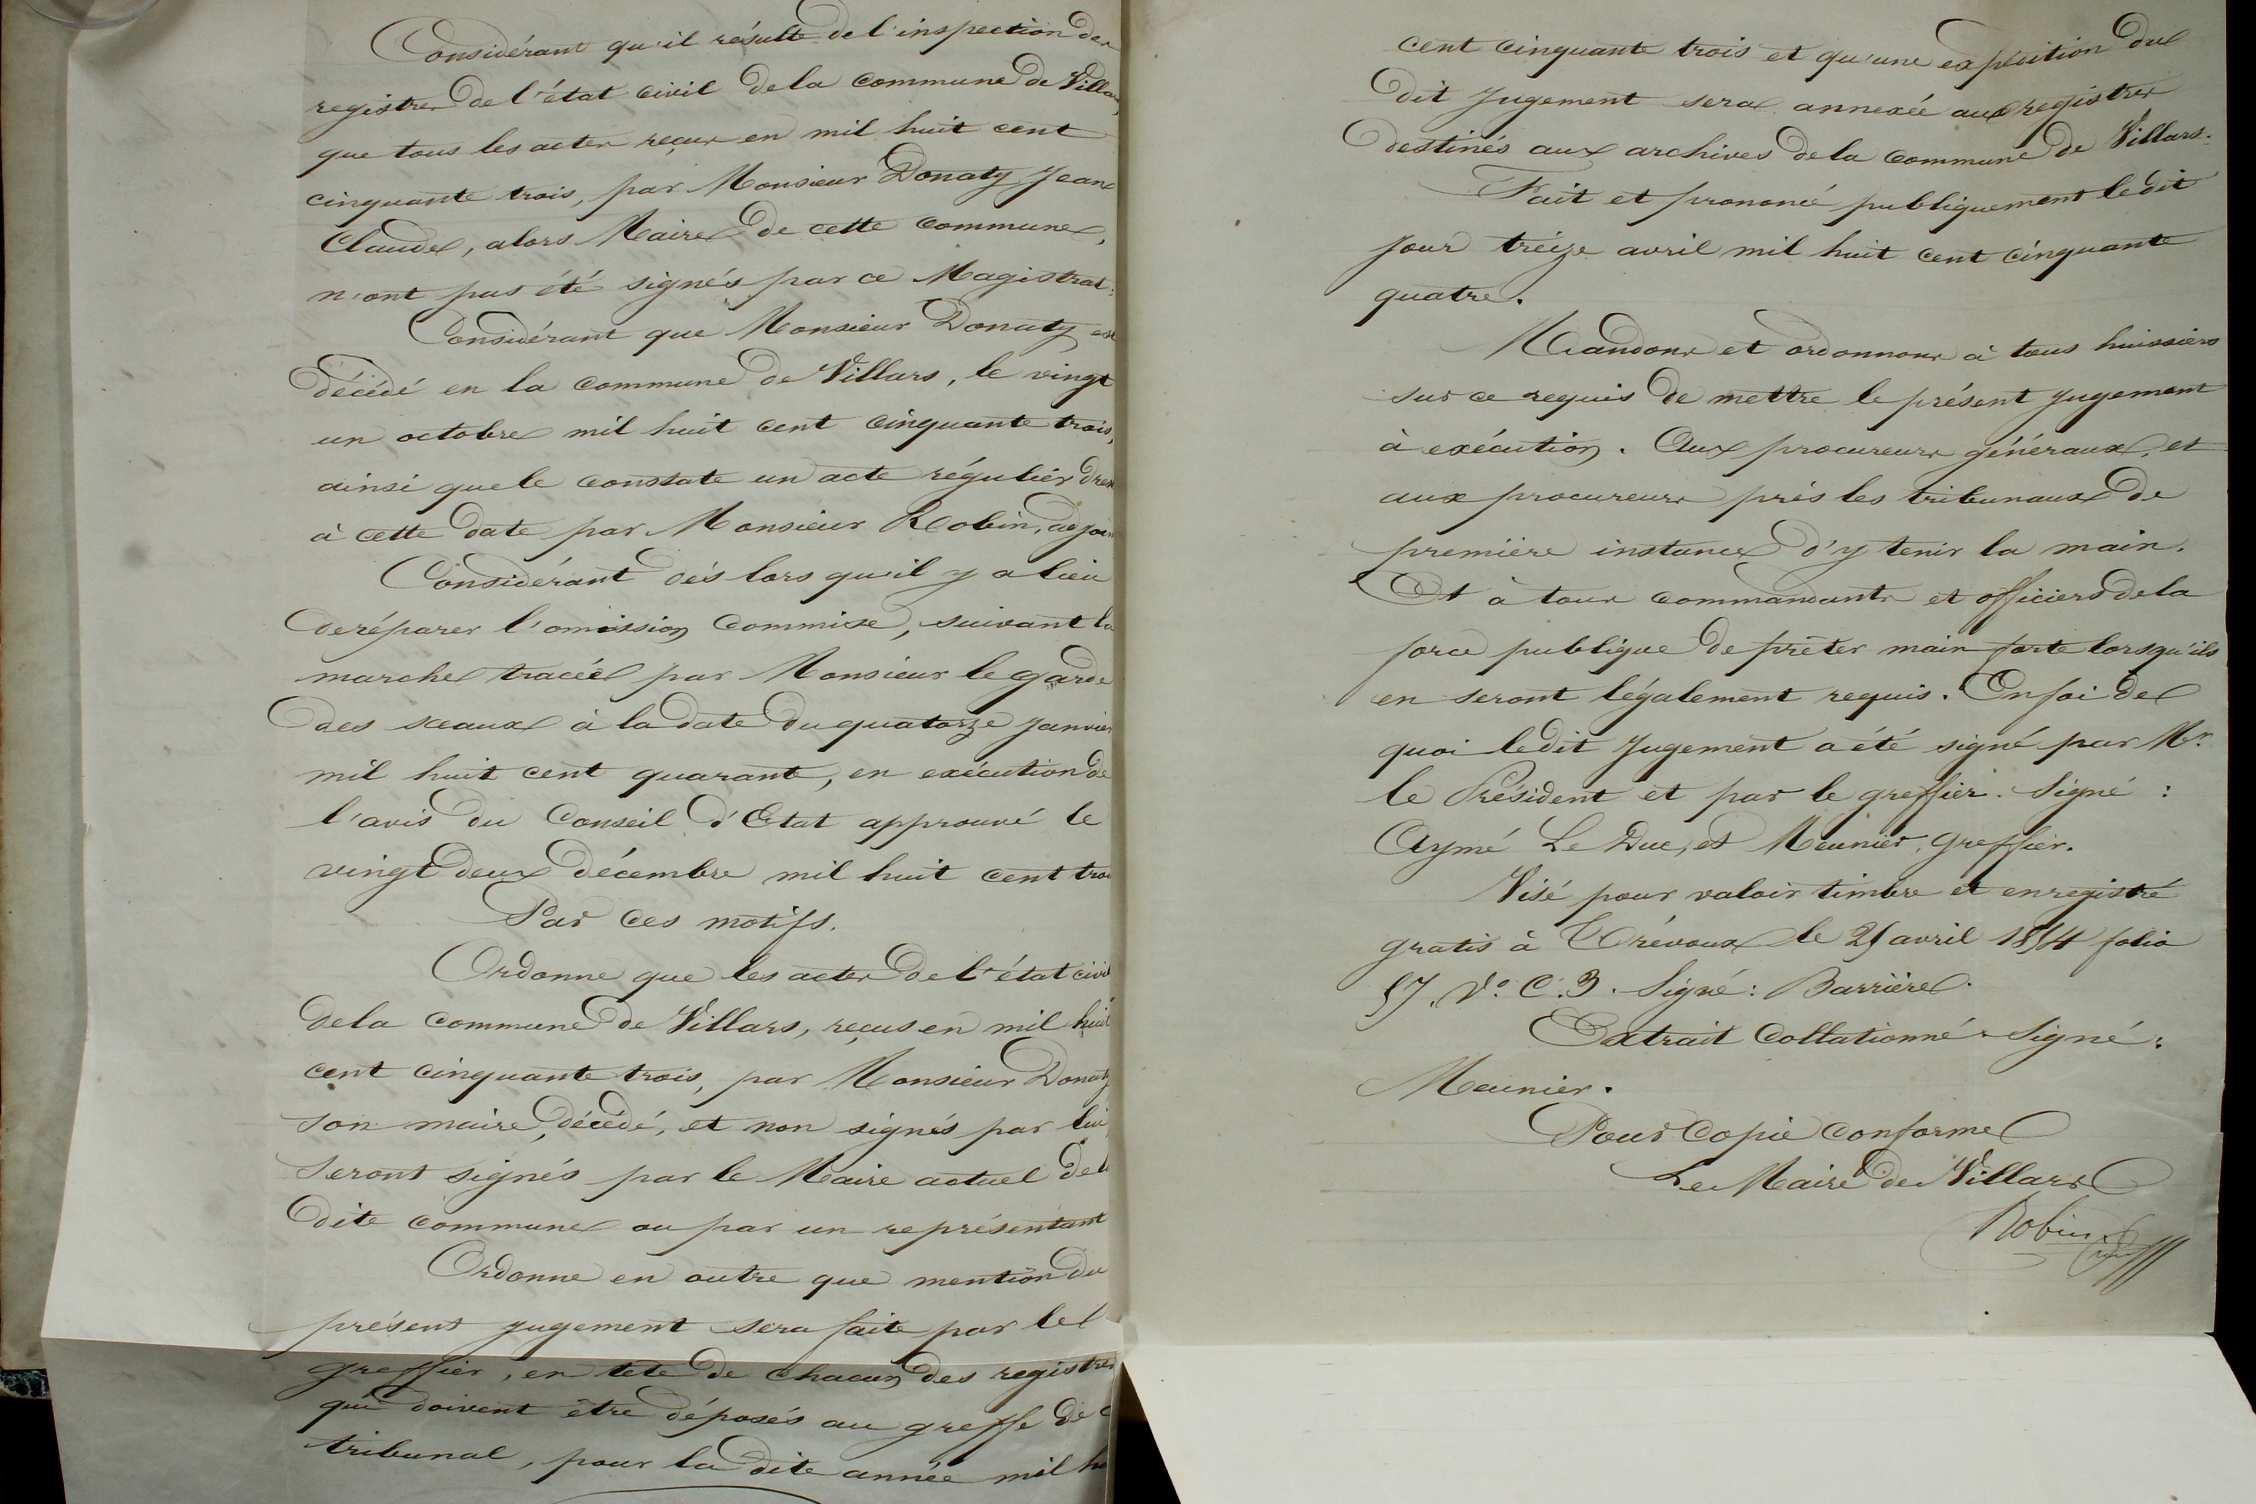 Considérant qu'il résulte de l'inspection des
registres de l'état civil de la commune de Villars,
que tous les actes reçus en mil huit cent
cinquante trois, par Monsieur Donaty Jean
Claude, alors Maire de cette commune,
n'ont pas été signés par ce Magistrat:
Considérant que Monsieur Donaty est
décédé en la commune de Villars, le vingt
un octobre mil huit cent cinquante trois,
ainsi que le constate un acte régulier
à cette date par Monsieur Robin, adjoint
Considérant dès lors qu'il y a lieu
de réparer l'omission commise, suivant la
marche tracée par Monsieur le garde
des sceaux à la date du quatorze janvier
mil huit cent quarante, en exécution de
l'avis du Conseil d'Etat approuvé le
vingt deux décembre mil huit cent
Par ces motifs.
Ordonne que les actes de l'état civil
de la commune de Villars, reçus en mil huit
cent cinquante trois, par Monsieur Donaty
son maire, décédé, et non signés par lui,
seront signés par le Maire actuel de
dite commune ou par un représentant
Ordonne en outre que mention du
présent jugement sera faite par le
greffier, en tete de chacun des registres
qui doivent être déposés au greffe de
tribunal, pour la dite année mil
cent cinquante trois et qu'une expédition du
dit jugement sera annexée aux registres
destinés aux archives de la commune de Villars.
Fait et prononcé publiquement le dit
jour treize avril mil huit cent cinquante
quatre.
Mandons et ordonnons à tous huissiers
sur ce requis de mettre le présent jugement
à exécution. Aux procureurs généraux, et
aux procureurs près les tribunaux de
première instance d'y tenir la main.
Et à tous commandants et officiers de la
force publique de prêter main forte lorsqu'ils
en seront légalement requis. En foi de
quoi ledit jugement a été signé par Mr.
le Président et par le greffier. Signé :
Aymé Le Duc, et Meunier, greffier.
Visé pour valoir timbre et enregistré
gratis à Trévoux le 25 avril 1854 folio
57. Vo. C. 3. Signé: Barrière.
Extrait collationné Signé:
Meunier.
Pour Copie conforme
Le Maire de Villars
Robin